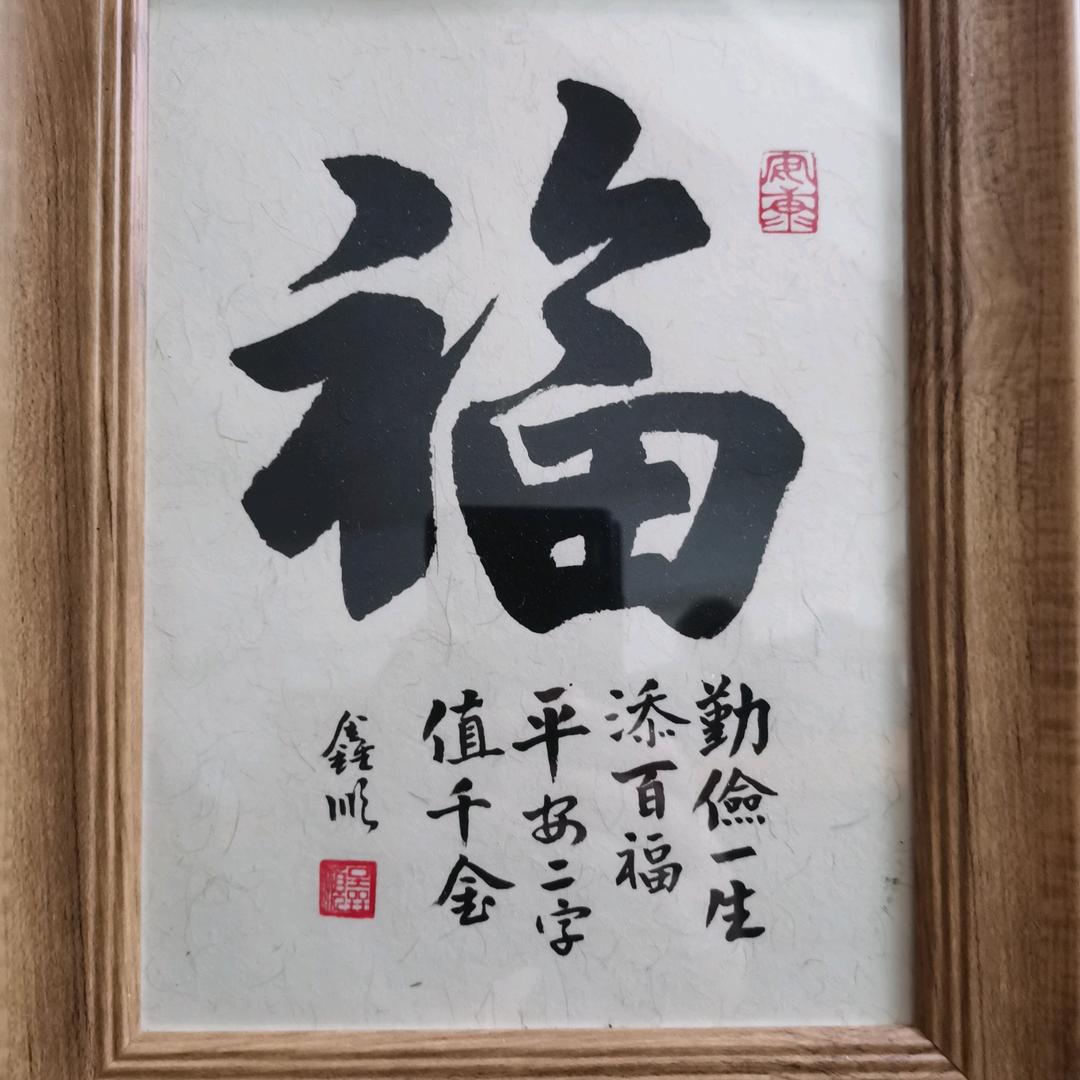 福
勤儉一生
添百福
平安二字
值千金
鑫順